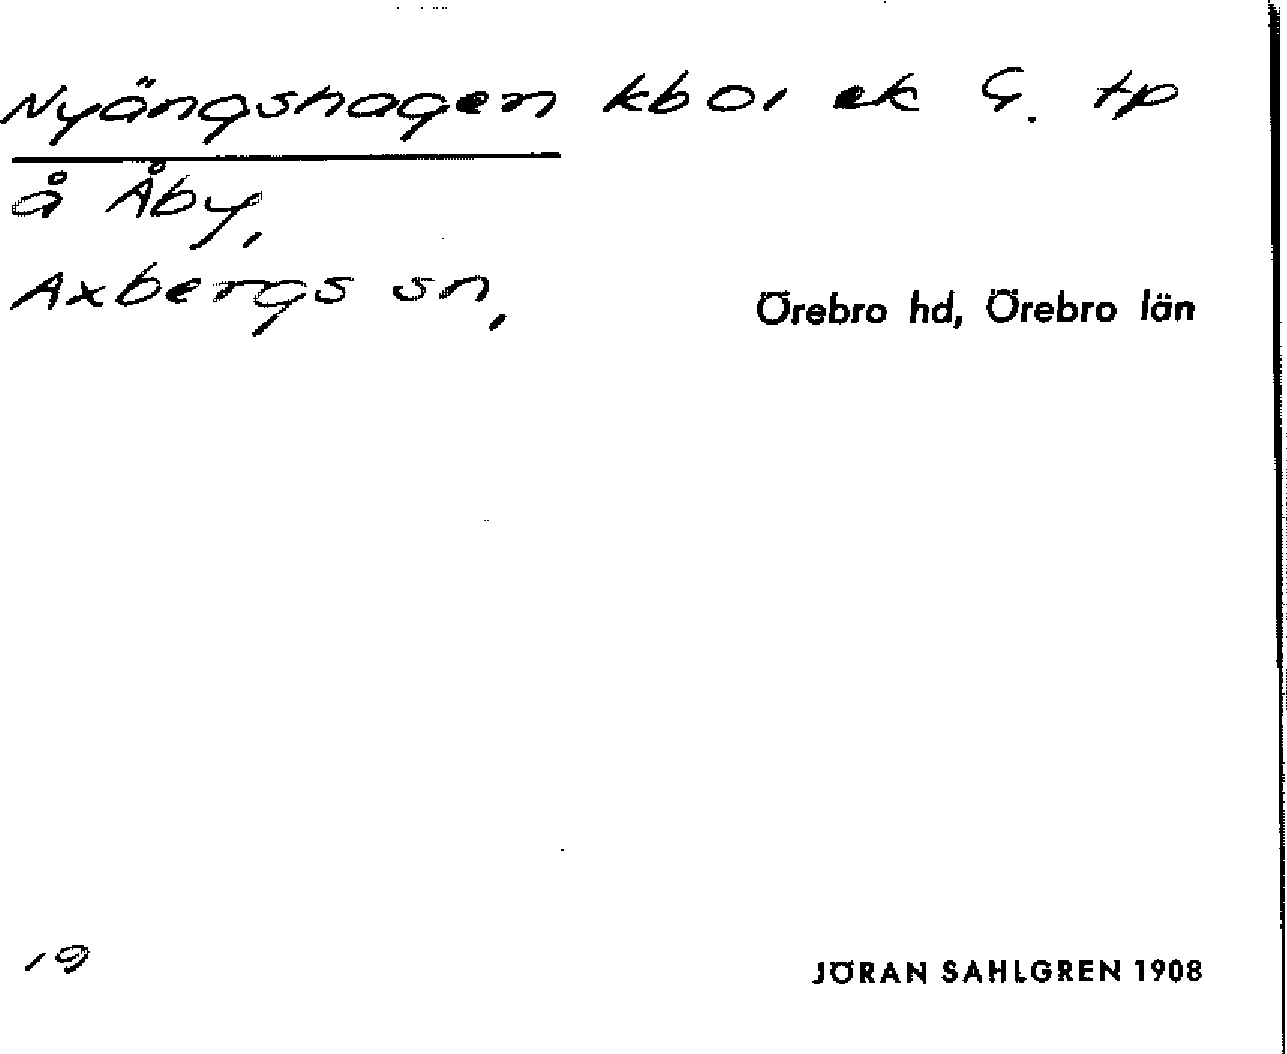 Nyängshagen kbol ek G. tp
å Åby,
Axbergs sn, Örebro hd, Örebro län
19 JÖRAN SAHLGREN 1908